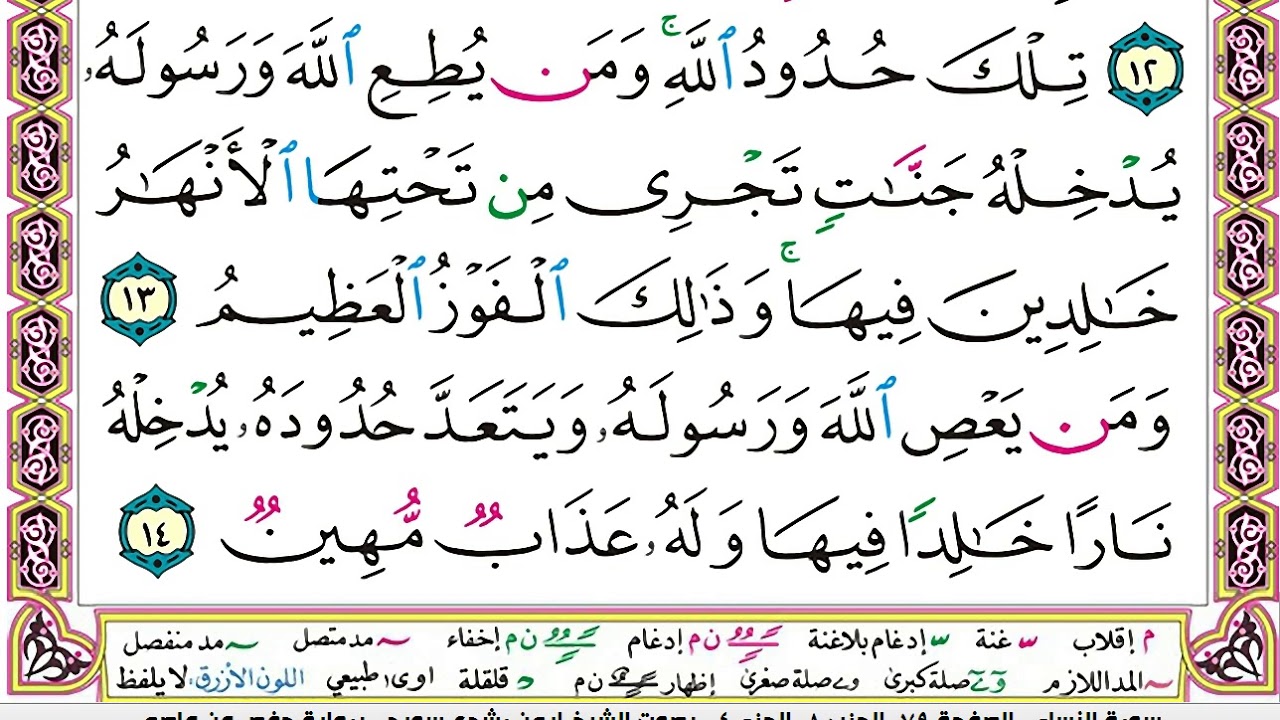 ١٢ تِلْكَ حُدُودُ ٱللَّهِ ۚ وَمَن يُطِعِ ٱللَّهَ وَرَسُولَهُۥ
يُدْخِلْهُ جَنَّـٰتٍ تَجْرِى مِن تَحْتِهَا ٱلْأَنْهَـٰرُ
خَـٰلِدِينَ فِيهَا ۚ وَذَٰلِكَ ٱلْفَوْزُ ٱلْعَظِيمُ ١٣
وَمَن يَعْصِ ٱللَّهَ وَرَسُولَهُۥ وَيَتَعَدَّ حُدُودَهُۥ يُدْخِلْهُ
نَارًا خَـٰلِدًا فِيهَا وَلَهُۥ عَذَابٌ مُّهِينٌ ١٤
م إقلاب غنة إدغام بلاغنة ن م إدغام ن م إخفاء مد متصل مد منفصل
المد اللازم صلة كبرى صلة صغرى إظهار ن م قلقلة اوى طبيعي اللون الأزرق: لا يلفظ